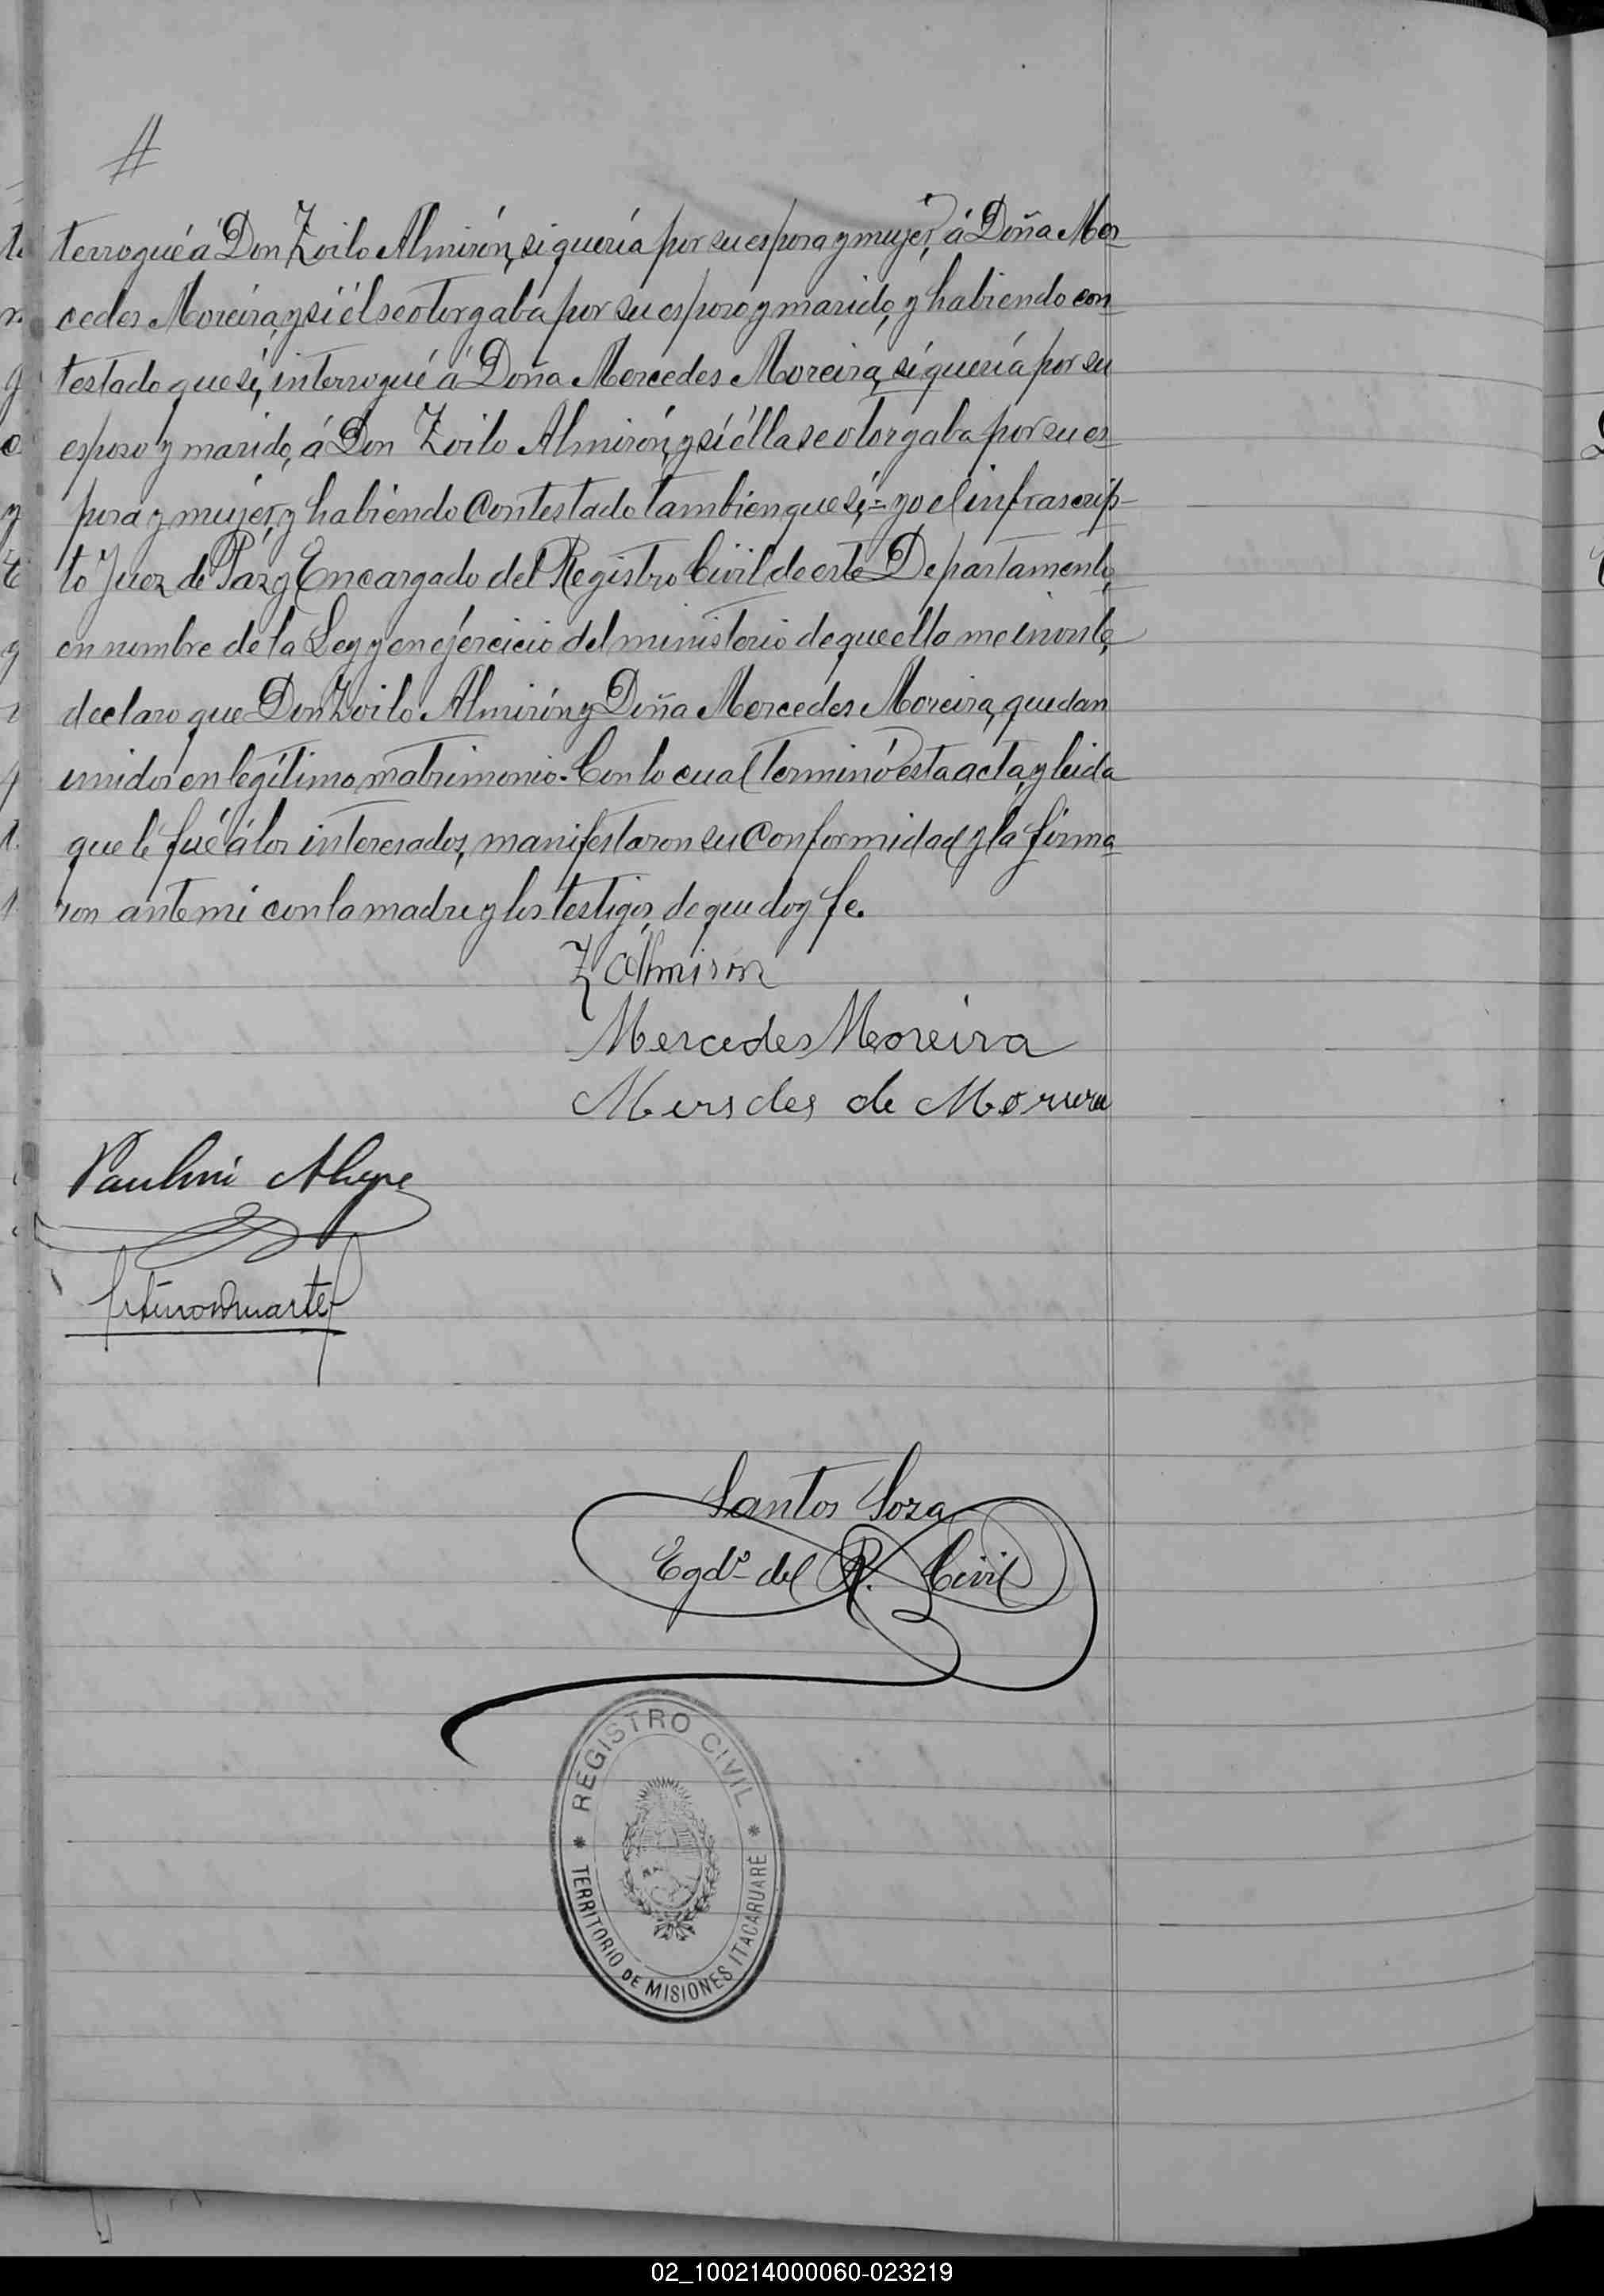 #
terrogué á Don Zoilo Almirón, si quería por su esposa y mujer, á Doña Mer
cedes Moreira, y si él se otorgaba por su esposo y marido, y habiendo con
testado que si, interrogué á Doña Mercedes Moreira, si quería por su
esposo y marido, á Don Zoilo Almirón, y si élla se otorgaba por su es
posa y mujer, y habiendo contestado tambien que si,= yo el infrascrip-
to Juez de Paz y Encargado del Registro Civil de este Departamento,
en nombre de la Ley y en ejercicio del ministerio de que ella me inviste,
declaro que Don Zoilo Almirón y Doña Mercedes Moreira, quedan
unidos en legítimo matrimonio. Con lo cual terminó esta acta, y leida
que le fué á los interesados, manifestaron su conformidad y la firma
ron ante mi con la madre y los testigos, de que doy fe.
Z Almiron
Mercedes Moreira
Mersdes de
Paulini Alegre
Duarte
Santos Soza
Egdº del R. Civil
REGISTRO CIVIL
TERRITORIO DE MISIONES ITACARUARÉ
02_100214000060-023219